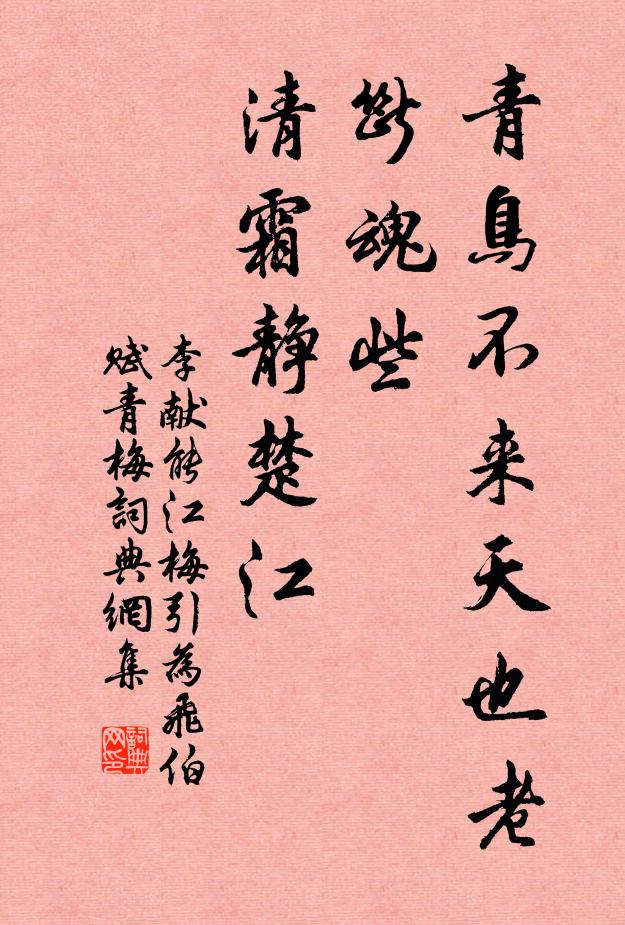 青鳥不来天也老
断魂些
清霜静楚江
李献能江梅引為飛伯
賦青梅詞典網集
詞典网印